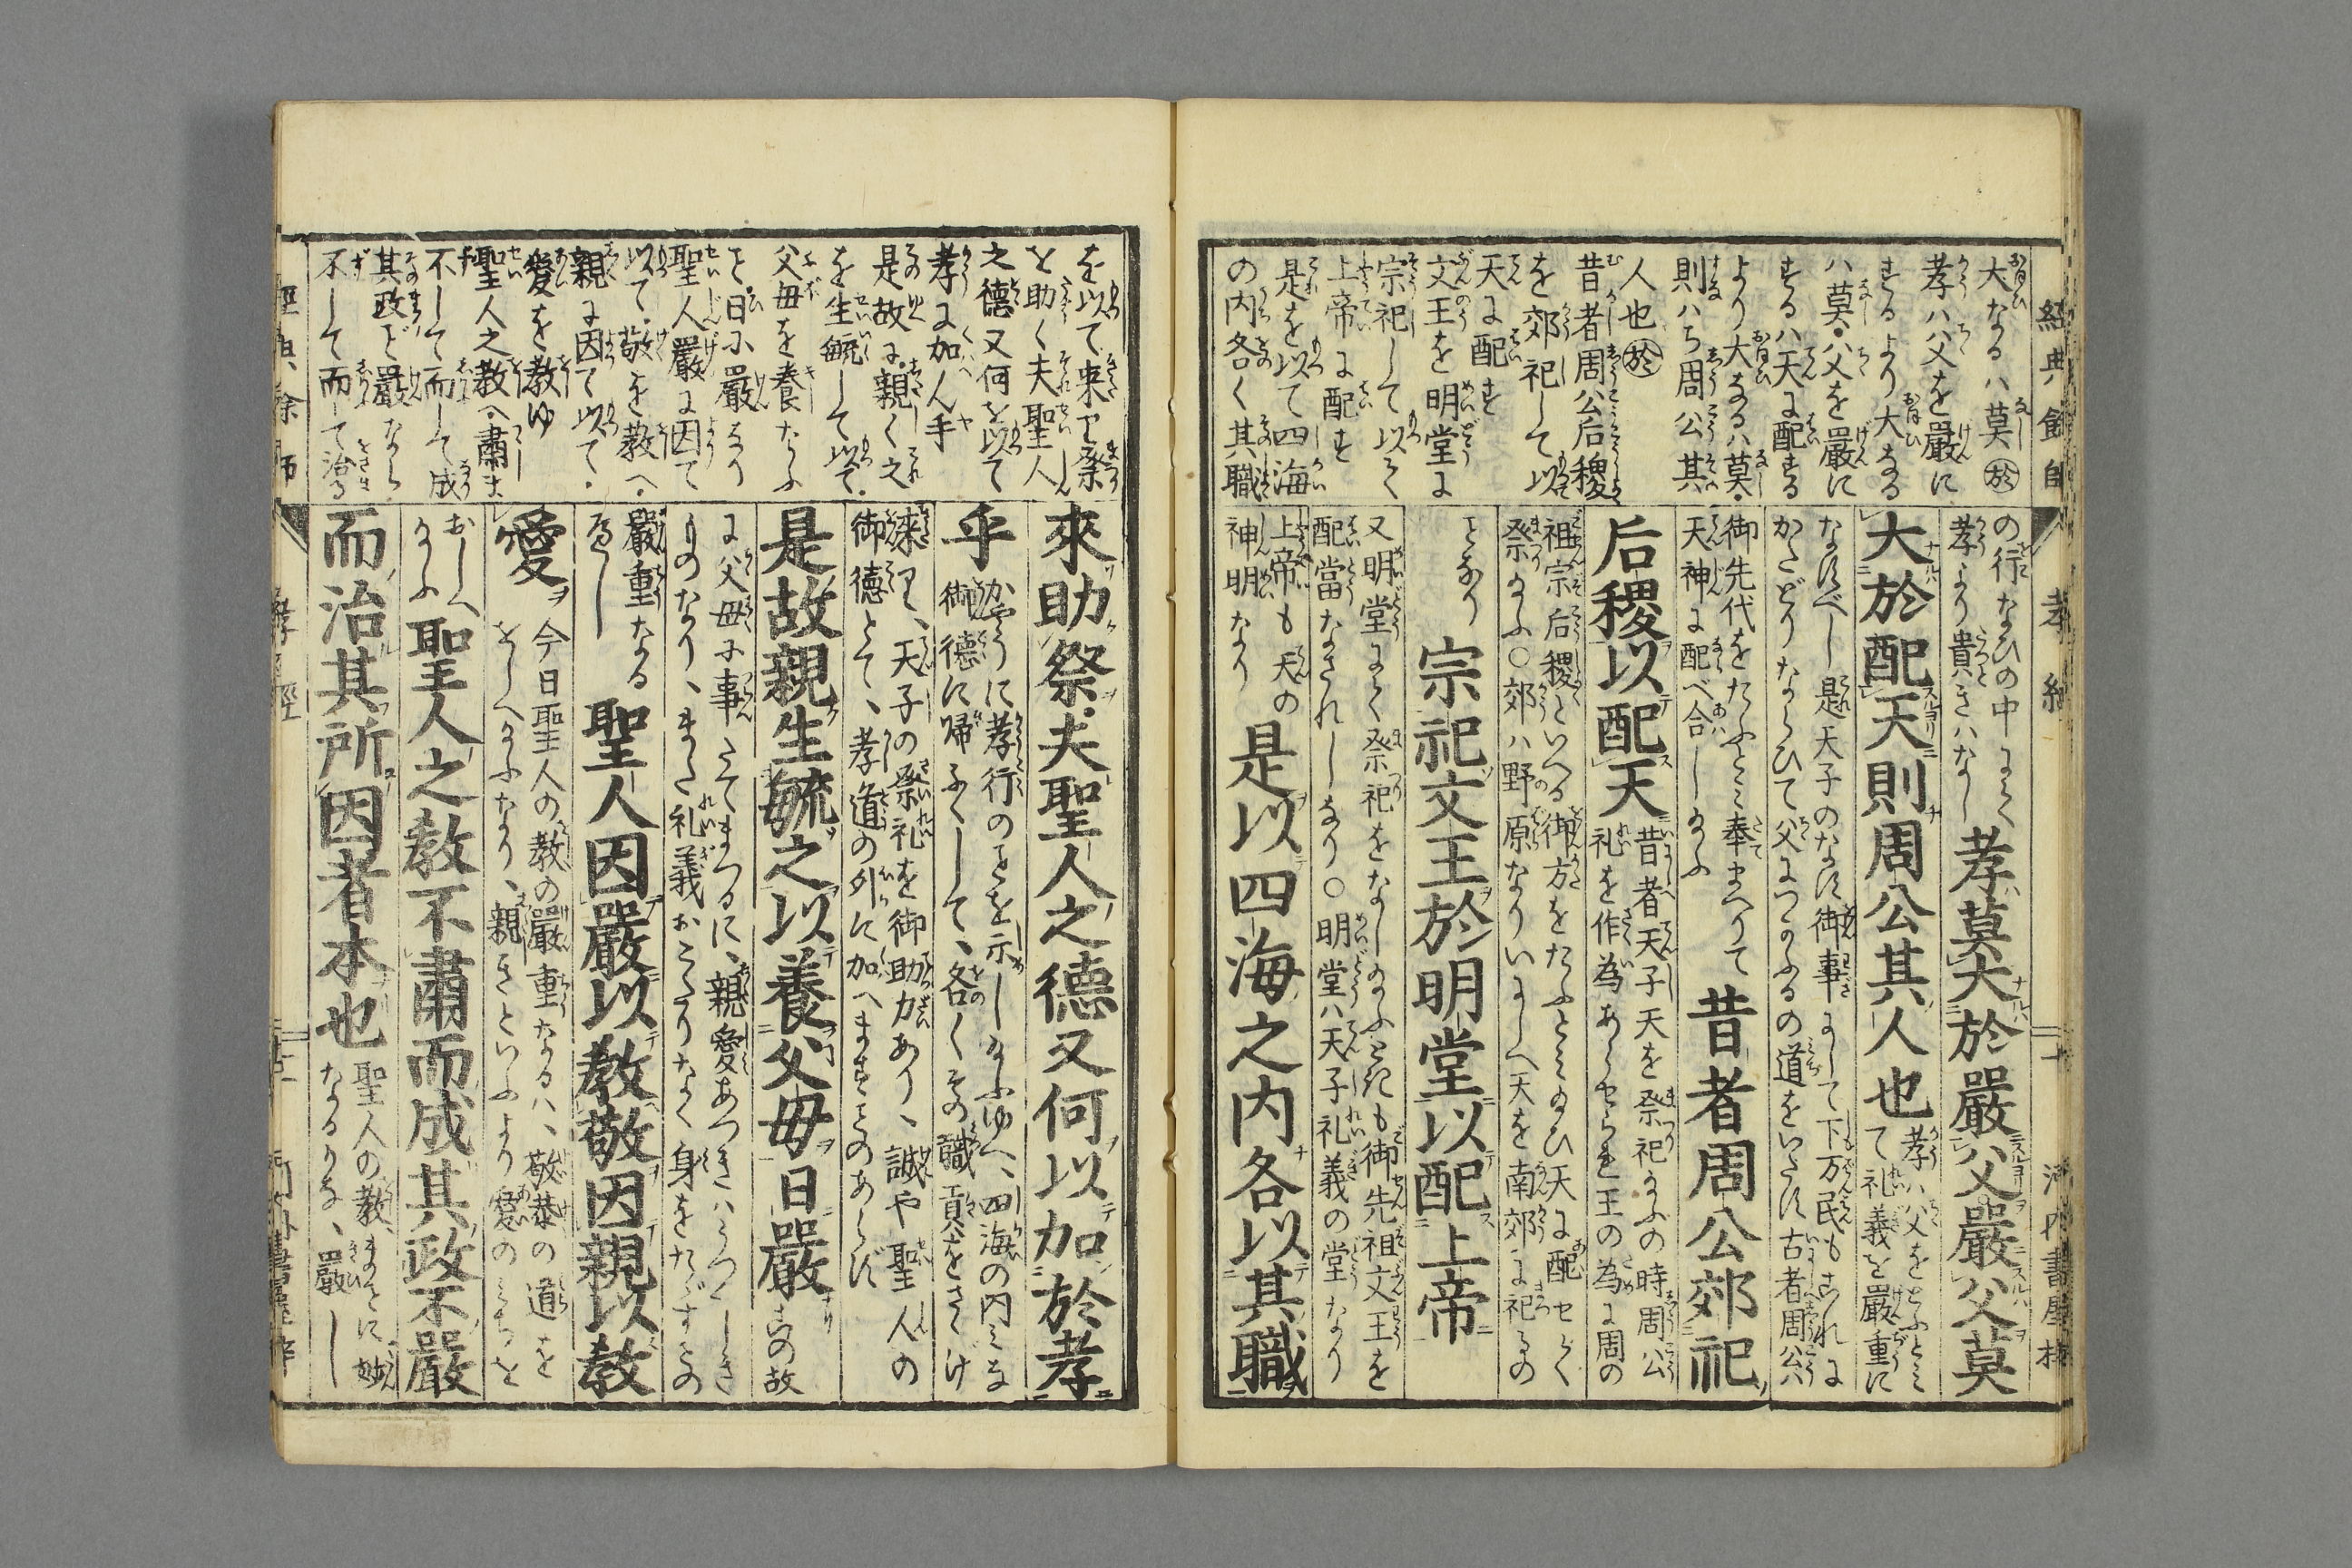 經典餘師
孝經
大なるハ莫㊀
孝ハ父を嚴に
するより大なる
ハ莫・父を嚴に
するハ天に配する
より大なるハ莫・
則ハち周公其
人也
昔者周公后稷
を郊祀して以
天に配す
文王を明堂に
宗祀して以て
上帝に配す
是を以て四海
の内各く其職
の行なひの中にて
孝より貴きハなし
孝莫大於嚴父嚴父莫
大於配天則周公其人也
孝ハ父をたふとみ
て礼義を嚴重に
なすべし是天子のなす御事にして下万民もこれに
かたどりならひて父につかふるの道をいたす古者周公ハ
御先代をたふとミ奉まへりて
天神に配べ合しかふ
昔者周公郊祀
后稷以配天
昔者天子天を祭祀かふの時周公
礼を作為あらせられ王の為に周の
祖宗后稷といへる御方をたふとミかひ天に配せく
祭かふ○郊ハ野原なりいにしへ天を南郊に祀るの
となり
宗祀文王於明堂以配上帝
又明堂にて祭祀をなしかふときも御先祖文王を
配當なされしなり○明堂ハ天子礼義の堂なり
上帝も天の
神明なり
是以四海之内各以其職
を以て来て祭
を助く夫聖人
之德又何を以て
孝に加へん手
是故に親く之
を生毓して以て・
父母を養なふ
を日に嚴なり
聖人嚴に因て
以て・敬を教へ・
親に因て以て・
愛を教ゆ
聖人之教へ・肅ま
不して而して成
其政ど嚴なら
不して而して治る
來助祭夫聖人之德又何以加於孝
乎
かやうに孝行のことを示しかふゆへ、四海の内ミな
御德に帰ふくして、各くその職貢をさゝげ
來り、天子の祭礼を御助力あり、誠や聖人の
御德とて、孝道の外に加へますものあらず
是故親生毓之以養父母日嚴
この故
に父母に事たてまつるに、親愛あつきハうつくしき
ものなり、また礼義おこたりなく身をたゞすもの
嚴重なる
べし
聖人因嚴以教敬因親以教
愛
今日聖人の教の嚴重なるハ、敬恭の道を
をしへかふなり、親きといふより愛のミちを
おしへ
かふ
聖人之教不肅而成其政不嚴
而治其所因者本也
聖人の教、まことに妙
なるかな、嚴し